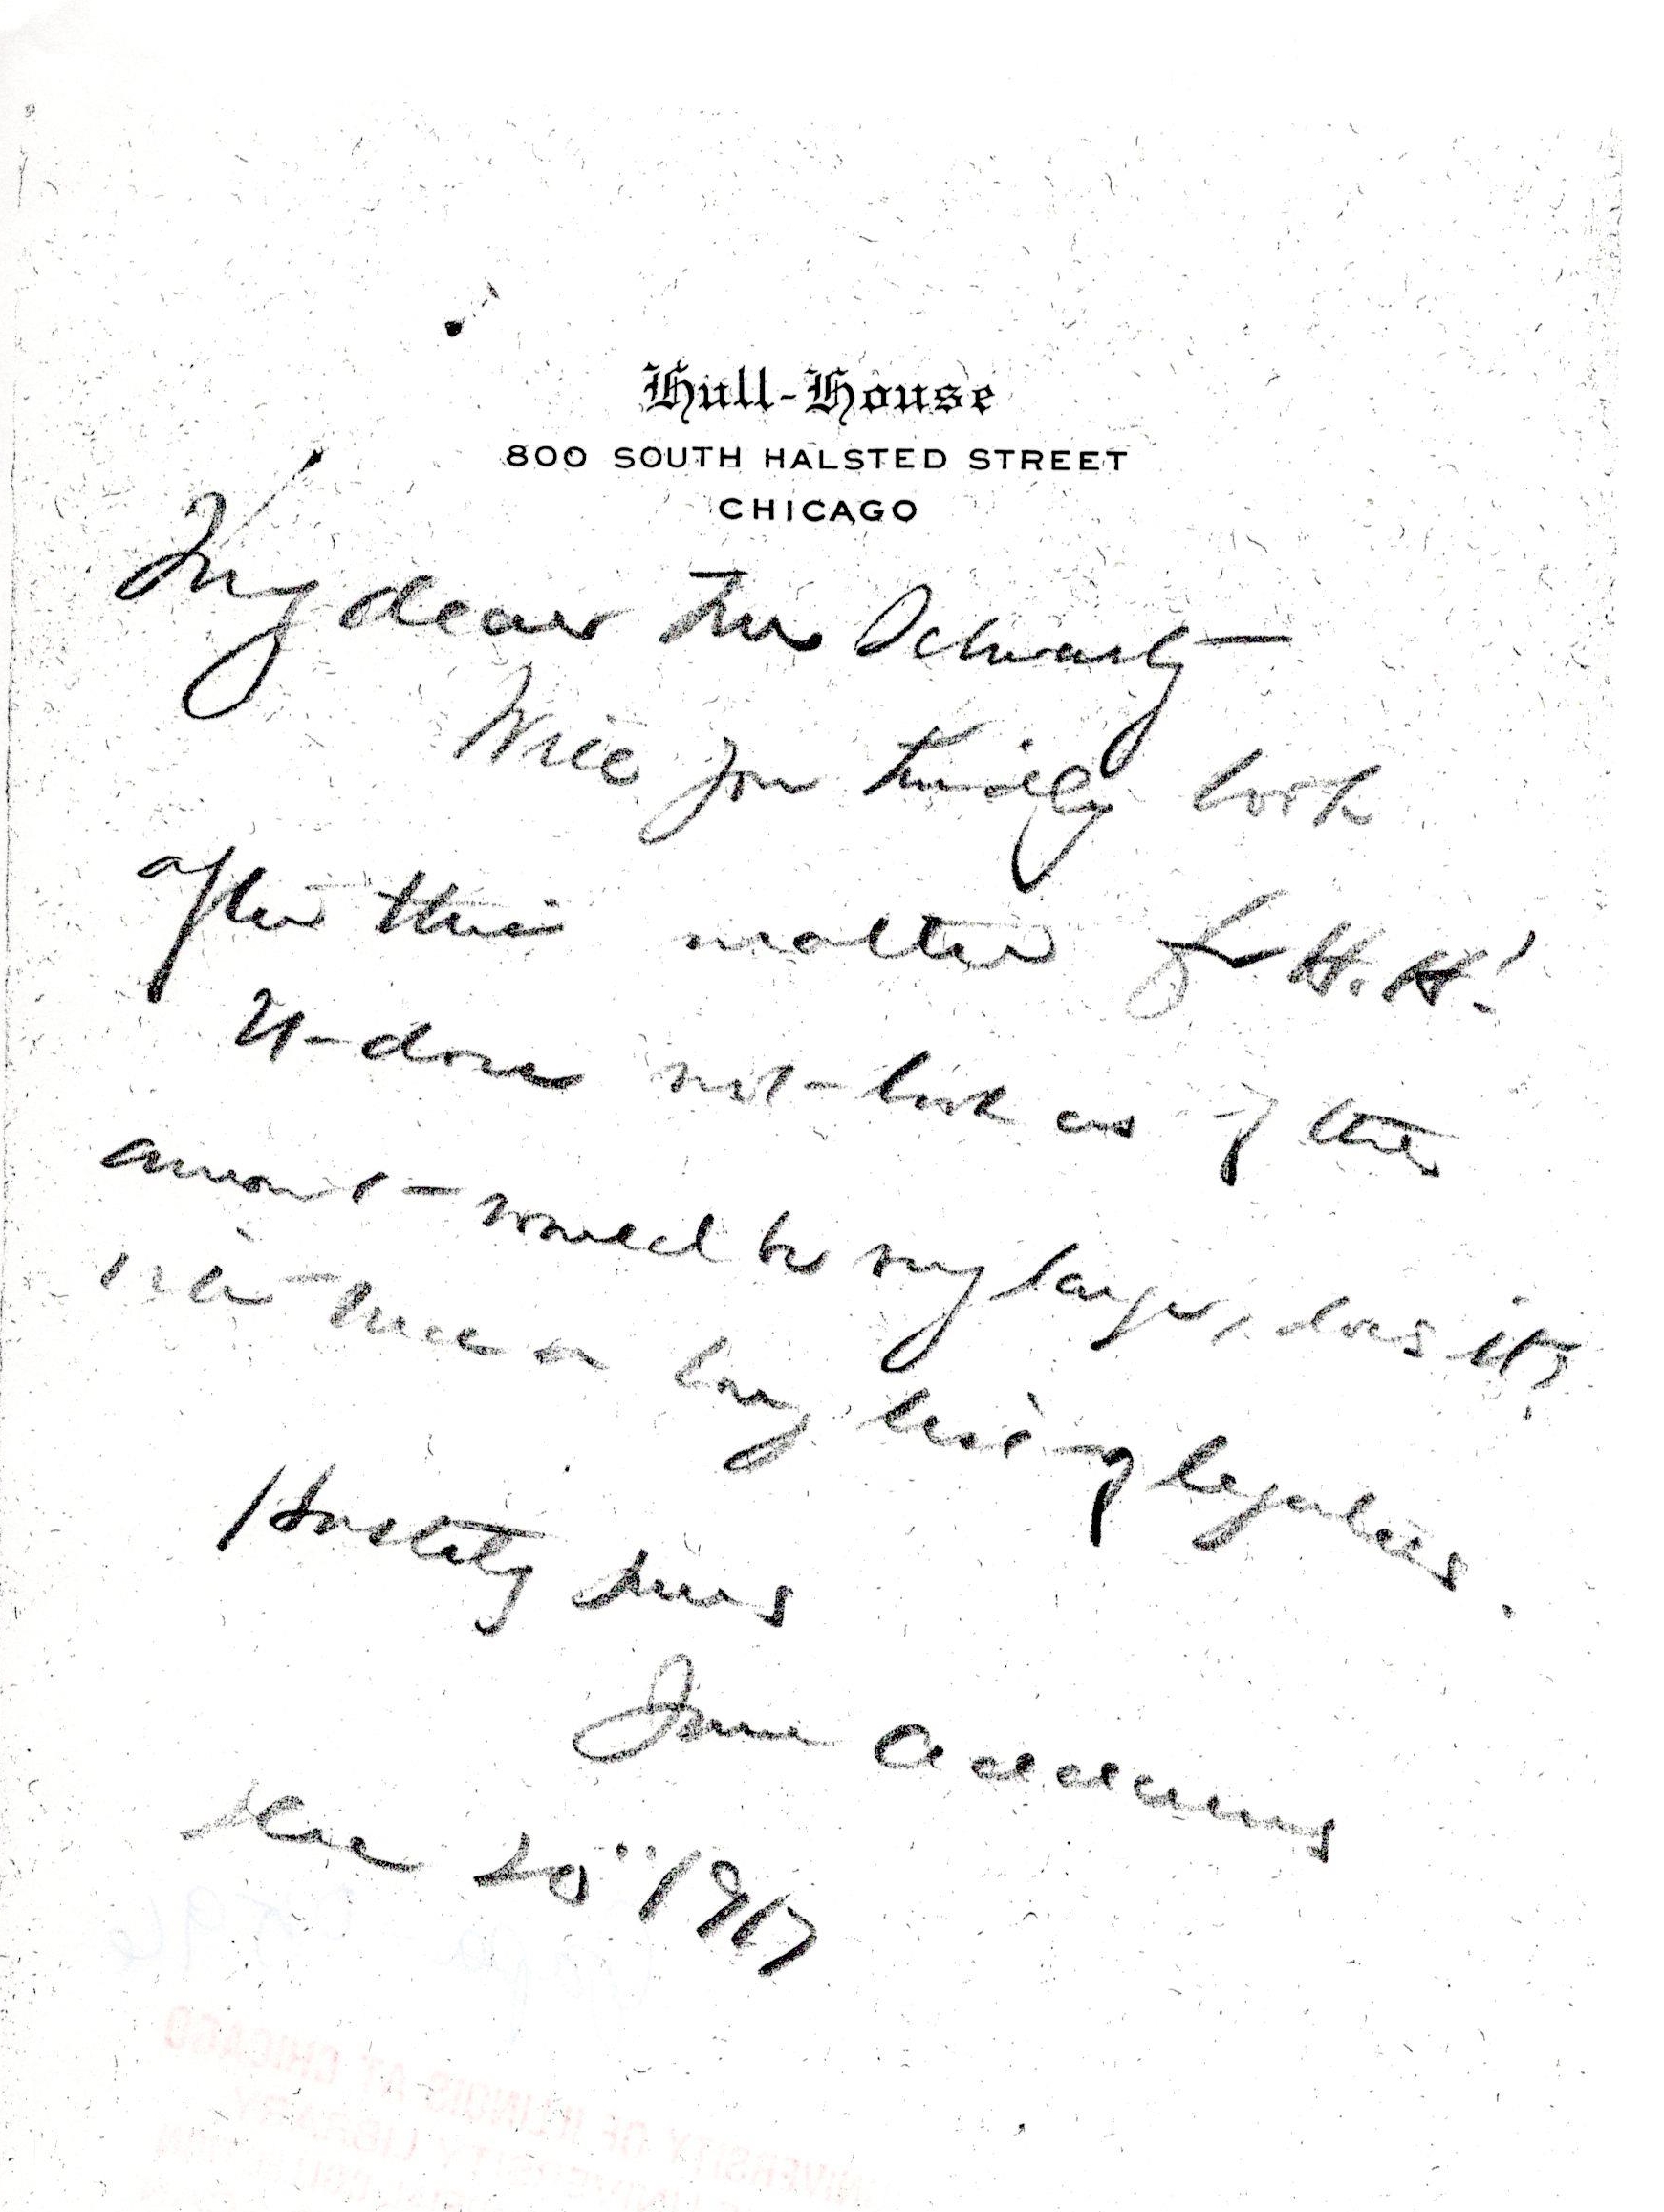 Hull-House
800 SOUTH HALSTED STREET
CHICAGO
My dear Mr Schwartz —
Will you kindly look
after this matter for H. H.!
It does not look as if the
amount would be very large, does it?
with a long list of legatees.
Hastily yours
Jane Addams
Dec 20" 1917
UNIVERSITY OF ILLINOIS AT CHICAGO
UNIVERSITY LIBRARY